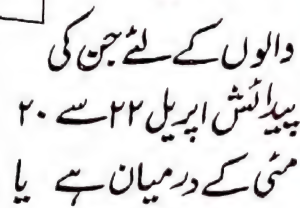 والوں کے لئے جن کی
پیدائش اپریل ۲۲ سے ۲۰
مئی کے درمیان ہے یا